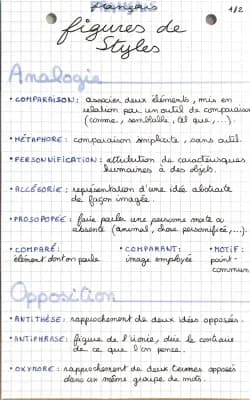 français
1/2
figures de
styles
Analogie
• COMPARAISON: associer deux éléments, mis en
relation par un outil de comparaison
(comme, semblable, tel que, ...).
• MÉTAPHORE: comparaison implicite, sans outil.
• PERSONNIFICATION: attribution de caractéristiques
humaines à des objets.
• ALLÉGORIE: représentation d'une idée abstraite
de façon imagée.
• PROSOPOPÉE: faire parler une personne morte ou
absente (animal, chose personnifié, ...).
• COMPARÉ: • COMPARANT: • MOTIF:
élément dont on parle image employée point-
commun
Opposition
• ANTITHÈSE: rapprochement de deux idées opposées.
• ANTIPHRASE: figure de l'ironie, dire le contraire
de ce que l'on pense.
• OXYMORE: rapprochement de deux termes opposés
dans un même groupe de mots.